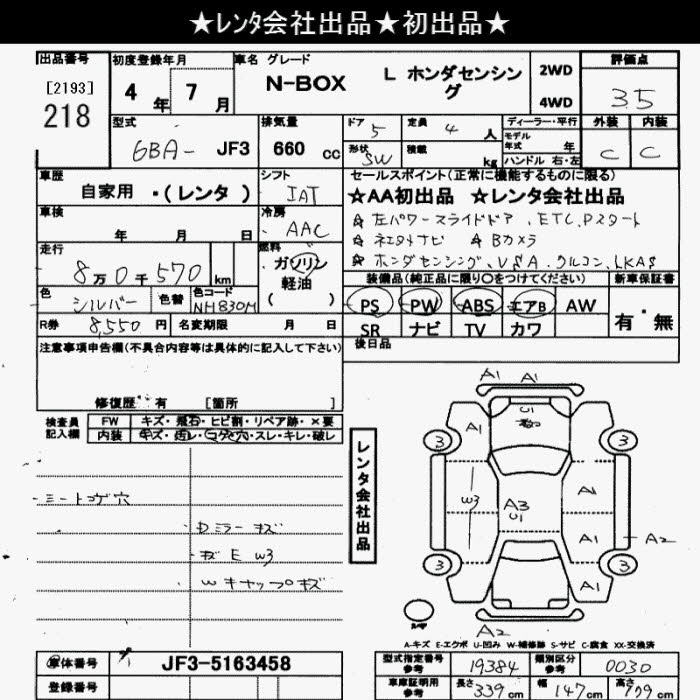 ★レンタ会社出品★初出品★
出品番号
[2193]
218
初度登録年月
4年 7月
車名 グレード
N-BOX
L ホンダセンシング
2WD
4WD
評価点
3.5
型式
6BA- JF3
排気量
660 cc
ドア 5
定員 4 人
形状 SW
積載 kg
ディーラー・平行
モデル年式 年
ハンドル 右・左
外装
C
内装
C
車歴
自家用 ・(レンタ)
シフト
IAT
セールスポイント(正常に機能するものに限る)
☆AA初出品 ☆レンタ会社出品
☆ 左パワースライドドア、ETC、Pスタート
☆ ☆ Bカメラ
☆ ホンダセンシング、VSA、クルコン、LKAS
車検
年 月 日
冷房
AAC
走行
8万0千570 km
燃料
ガソリン
軽油
( )
色
シルバー
色替
色コード
NH830M
装備品(純正品に限り○をつけてください)
PS PW ABS エアB AW
SR ナビ TV カワ
新車保証書
有・無
R券 8,550 円
名変期限 月 日
後日品
注意事項申告欄(不具合内容等は具体的に記入して下さい)
修復歴 有 [箇所 ]
検査員記入欄
FW キズ・飛石・ヒビ割・リペア跡・×要
内装 キズ・汚レ・コゲ穴・スレ・キレ・破レ
シートコゲ穴
Dミラーキズ
キズ E W3
Wキャップキズ
レンタ会社出品
A1 A1
U1
A1
3 3
W3
A3
U1
A1
A2
A1
3 3
A2
A-キズ E-エクボ U-凹み W-補修跡 S-サビ C-腐食 XX-交換済
車体番号
JF3-5163458
登録番号
型式指定番号 参考
19384
類別区分 参考
0030
車庫証明用 参考
長さ 339 cm
幅 147 cm
高さ 179 cm